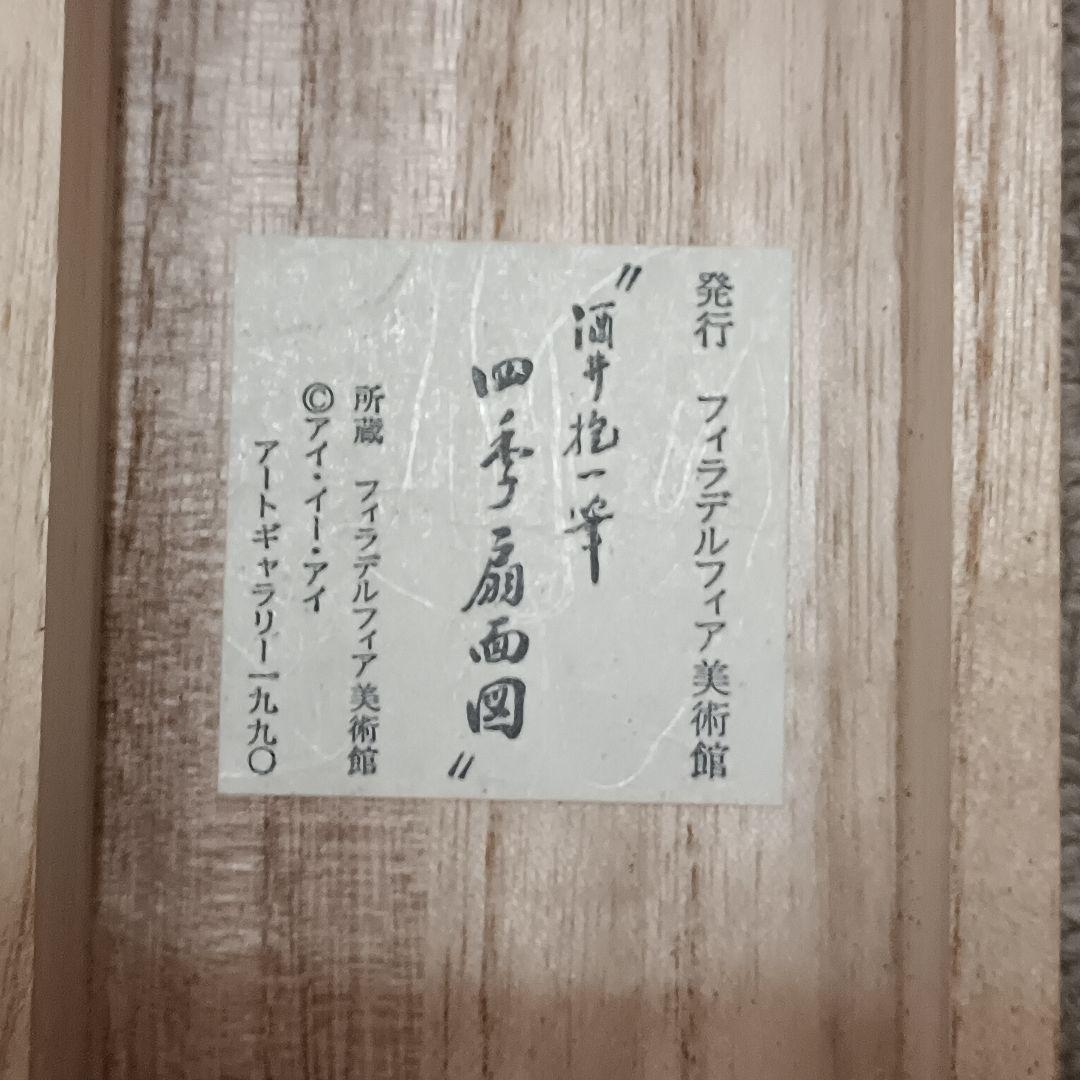 発行 フィラデルフィア美術館
〃酒井抱一筆
四季扇面図〃
所蔵 フィラデルフィア美術館
©アイ・イー・アイ
アートギャラリー一九九〇